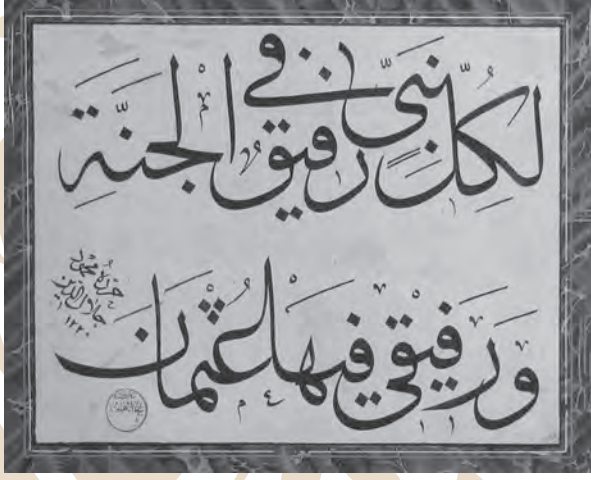 لِكُلِّ نَبِيٍّ رَفِيقٌ فِي الْجَنَّةِ
وَرَفِيقِي فِيهَا عُثْمَان
حرره محمود
جلال الدين
١٢٢٠